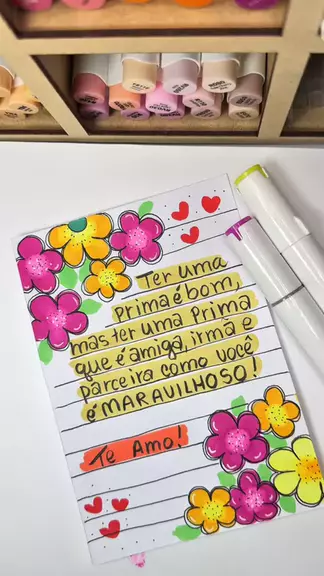 Ter uma
prima é bom,
mas ter uma prima
que é amiga, irmã e
parceira como você
é MARAVILHOSO!
Te Amo!